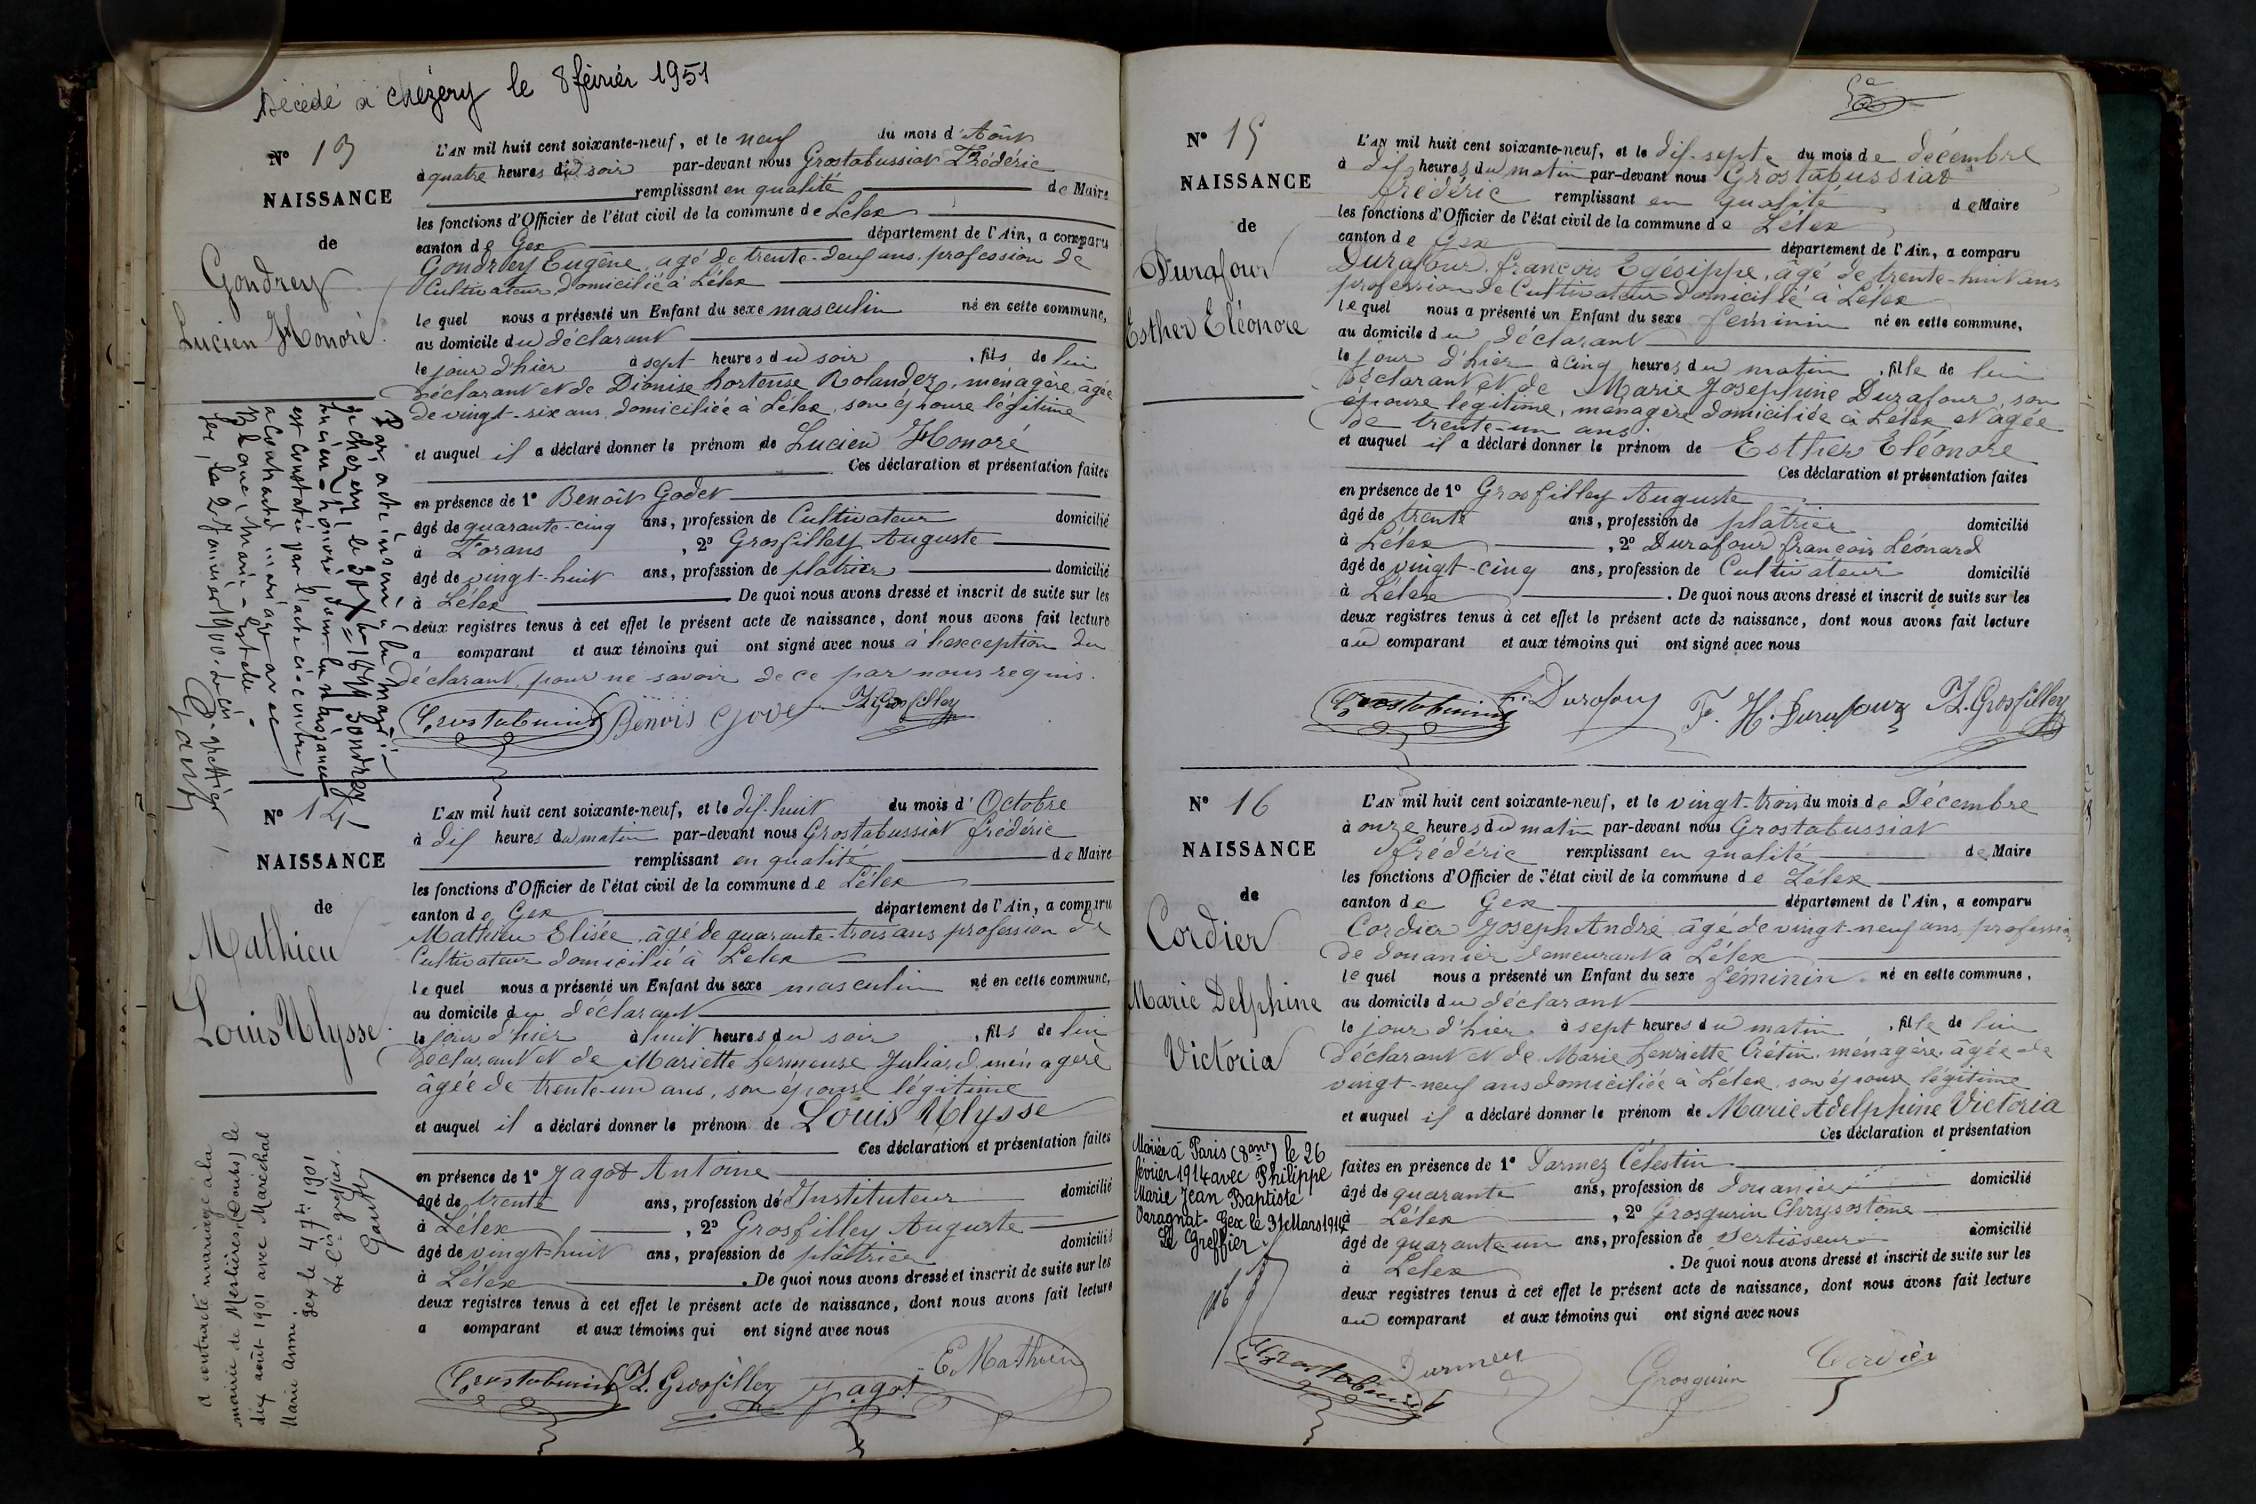 Décédé à Chézery le 8 février 1951
N° 13
NAISSANCE
de
Gondrey
Lucien Honoré
L'AN mil huit cent soixante-neuf, et le neuf du mois d'Août
à quatre heures du soir par-devant nous Grostabussiat Frédéric
remplissant en qualité de Maire
les fonctions d'Officier de l'état civil de la commune de Lélex
canton de Gex département de l'Ain, a comparu
Gondrey Eugène, agé de trente-deux ans, profession de
Cultivateur domicilié à Lélex
lequel nous a présenté un Enfant du sexe masculin né en cette commune,
au domicile du déclarant
le jour d'hier à sept heures du soir, fils de lui
déclarant et de Dionise hortense Rolandez, ménagère, agée
de vingt-six ans, domiciliée à Lélex, son épouse légitime
et auquel il a déclaré donner le prénom de Lucien Honoré
Ces déclaration et présentation faites
en présence de 1° Benoît Godet
âgé de quarante-cinq ans, profession de Cultivateur domicilié
à Forans, 2° Grosfilley Auguste
âgé de vingt-huit ans, profession de platrier domicilié
à Lélex De quoi nous avons dressé et inscrit de suite sur les
deux registres tenus à cet effet le présent acte de naissance, dont nous avons fait lecture
a comparant et aux témoins qui ont signé avec nous à l'exception du
déclarant, pour ne savoir de ce par nous requis.
Grostabussiat Benois Godet Grosfilley
Par acte inscrit à la mairie
de chezery, le 30 1899 Gondrey
lucien-honoré dont la naissance
est constatée par l'acte ci-contre,
a contracté mariage avec
Blanc, Marie-
Gex, le 2 Janvier 1900. Le Cis greffier
Gauthy
N° 14
NAISSANCE
de
Mathieu
Louis Ulysse
L'AN mil huit cent soixante-neuf, et le dix-huit du mois d'Octobre
à dix heures du matin par-devant nous Grostabussiat frédéric
remplissant en qualité de Maire
les fonctions d'Officier de l'état civil de la commune de Lélex
canton de Gex département de l'Ain, a comparu
Mathieu Elisée, âgé de quarante-trois ans profession de
Cultivateur domicilié à Lélex
lequel nous a présenté un Enfant du sexe masculin né en cette commune,
au domicile du déclarant
le jour d'hier à huit heures du soir, fils de lui
Déclarant et de Mariette hermense Juliard, ménagère
âgée de trente-un ans, son épouse légitime
et auquel il a déclaré donner le prénom de Louis Ulysse
Ces déclaration et présentation faites
en présence de 1° Jagot Antoine
âgé de trente ans, profession de Instituteur domicilié
à Lélex, 2° Grosfilley Auguste
âgé de vingt-huit ans, profession de plâtrier domicilié
à Lélex. De quoi nous avons dressé et inscrit de suite sur les
deux registres tenus à cet effet le présent acte de naissance, dont nous avons fait lecture
a comparant et aux témoins qui ont signé avec nous
E. Mathieu
Grostabussiat Grosfilley Jagot
a contracté mariage à la
mairie de Meslières (Doubs) le
dix août 1901 avec Maréchal
Marie
Gex le 4 7bre 1901
Le Cis greffier.
Gauthy
N° 15
NAISSANCE
de
Durafour
Esther Eléonore
L'AN mil huit cent soixante-neuf, et le dix-sept du mois de décembre
à dix heures du matin par-devant nous Grostabussiat
frédéric remplissant en qualité de Maire
les fonctions d'Officier de l'état civil de la commune de Lélex
canton de Gex département de l'Ain, a comparu
Durafour françois Egésippe, âgé de trente-huit ans
profession de Cultivateur domicilié à Lélex
lequel nous a présenté un Enfant du sexe féminin né en cette commune,
au domicile du déclarant
le jour d'hier à cinq heures du matin, fille de lui
Déclarant et de Marie Josephine Durafour, son
épouse légitime, ménagère domiciliée à Lélex et âgée
de trente-un ans.
et auquel il a déclaré donner le prénom de Esther Eléonore
Ces déclaration et présentation faites
en présence de 1° Grosfilley Auguste
âgé de trente ans, profession de plâtrier domicilié
à Lélex, 2° Durafour françois Léonard
âgé de vingt-cinq ans, profession de Cultivateur domicilié
à Lélex. De quoi nous avons dressé et inscrit de suite sur les
deux registres tenus à cet effet le présent acte de naissance, dont nous avons fait lecture
au comparant et aux témoins qui ont signé avec nous
Grostabussiat Durafour F. H. Durafour Grosfilley
N° 16
NAISSANCE
de
Cordier
Marie Delphine
Victoria
L'AN mil huit cent soixante-neuf, et le vingt-trois du mois de Décembre
à onze heures du matin par-devant nous Grostabussiat
frédéric remplissant en qualité de Maire
les fonctions d'Officier de l'état civil de la commune de Lélex
canton de Gex département de l'Ain, a comparu
Cordier Joseph André âgé de vingt-neuf ans, profession
de douanier demeurant à Lélex
lequel nous a présenté un Enfant du sexe féminin né en cette commune,
au domicile du déclarant
le jour d'hier à sept heures du matin, fille de lui
déclarant et de Marie henriette Crétin, ménagère, âgée de
vingt-neuf ans domiciliée à Lélex, son épouse légitime
et auquel il a déclaré donner le prénom de Marie Adelphine Victoria
Ces déclaration et présentation
faites en présence de 1° Parmez Célestin
âgé de quarante ans, profession de douanier domicilié
à Lélex, 2° Grosgurin Chrysostome
âgé de quarante un ans, profession de Sertisseur domicilié
à Lélex. De quoi nous avons dressé et inscrit de suite sur les
deux registres tenus à cet effet le présent acte de naissance, dont nous avons fait lecture
au comparant et aux témoins qui ont signé avec nous
Grostabussiat Grosgurin Cordier
Mariée à Paris (8 arr) le 26
février 1914 avec Philippe
Marie Jean Baptiste
Varagnat. Gex le 31 Mars 1914
Le Greffier